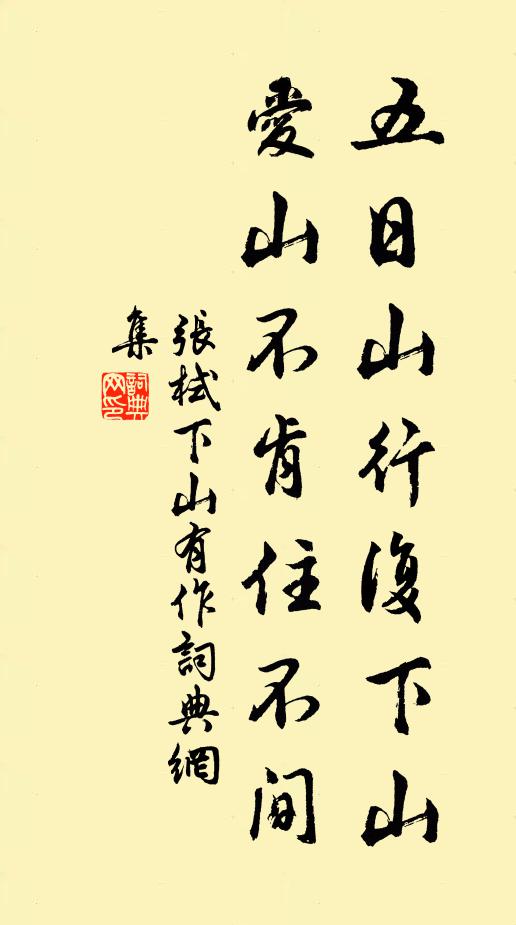 五日山行復下山
愛山不肯住不間
張栻下山有作詞典網
集
詞典
网印